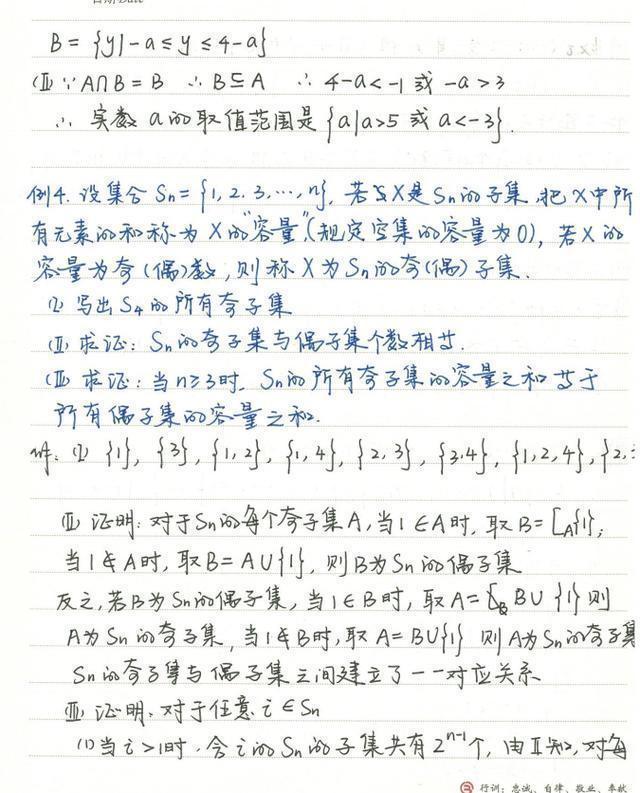 日期 Date
B = {y|-a ≤ y ≤ 4-a}
(Ⅱ) ∵ A∩B = B ∴ B⊆A ∴ 4-a < -1 或 -a > 3
∴ 实数 a 的取值范围是 {a|a>5 或 a<-3}.
例4. 设集合 Sn = {1, 2, 3, ⋯, n}, 若X是Sn的子集,把X中所
有元素的和称为X的"容量"(规定空集的容量为0), 若X的
容量为奇(偶)数, 则称X为Sn的奇(偶)子集.
(Ⅰ) 写出S4的所有奇子集
(Ⅱ) 求证: Sn的奇子集与偶子集个数相等.
(Ⅲ) 求证: 当n≥3时, Sn的所有奇子集的容量之和等于
所有偶子集的容量之和.
解: (Ⅰ) {1}, {3}, {1,2}, {1,4}, {2,3}, {3,4}, {1,2,4}, {2,
(Ⅱ) 证明: 对于Sn的每个奇子集A, 当1∈A时, 取B = ∁A{1};
当1∉A时, 取B=A∪{1}, 则B为Sn的偶子集
反之,若B为Sn的偶子集, 当1∈B时, 取A=∁B B∪{1} 则
A为Sn的奇子集, 当1∉B时,取A=B∪{1} 则A为Sn的奇子集
Sn的奇子集与偶子集之间建立了一一对应关系
(Ⅲ) 证明: 对于任意i∈Sn
(1)当i>1时, 含i的Sn的子集共有2^{n-1}个, 由Ⅱ知, 对每
行训: 忠诚、自律、敬业、奉献